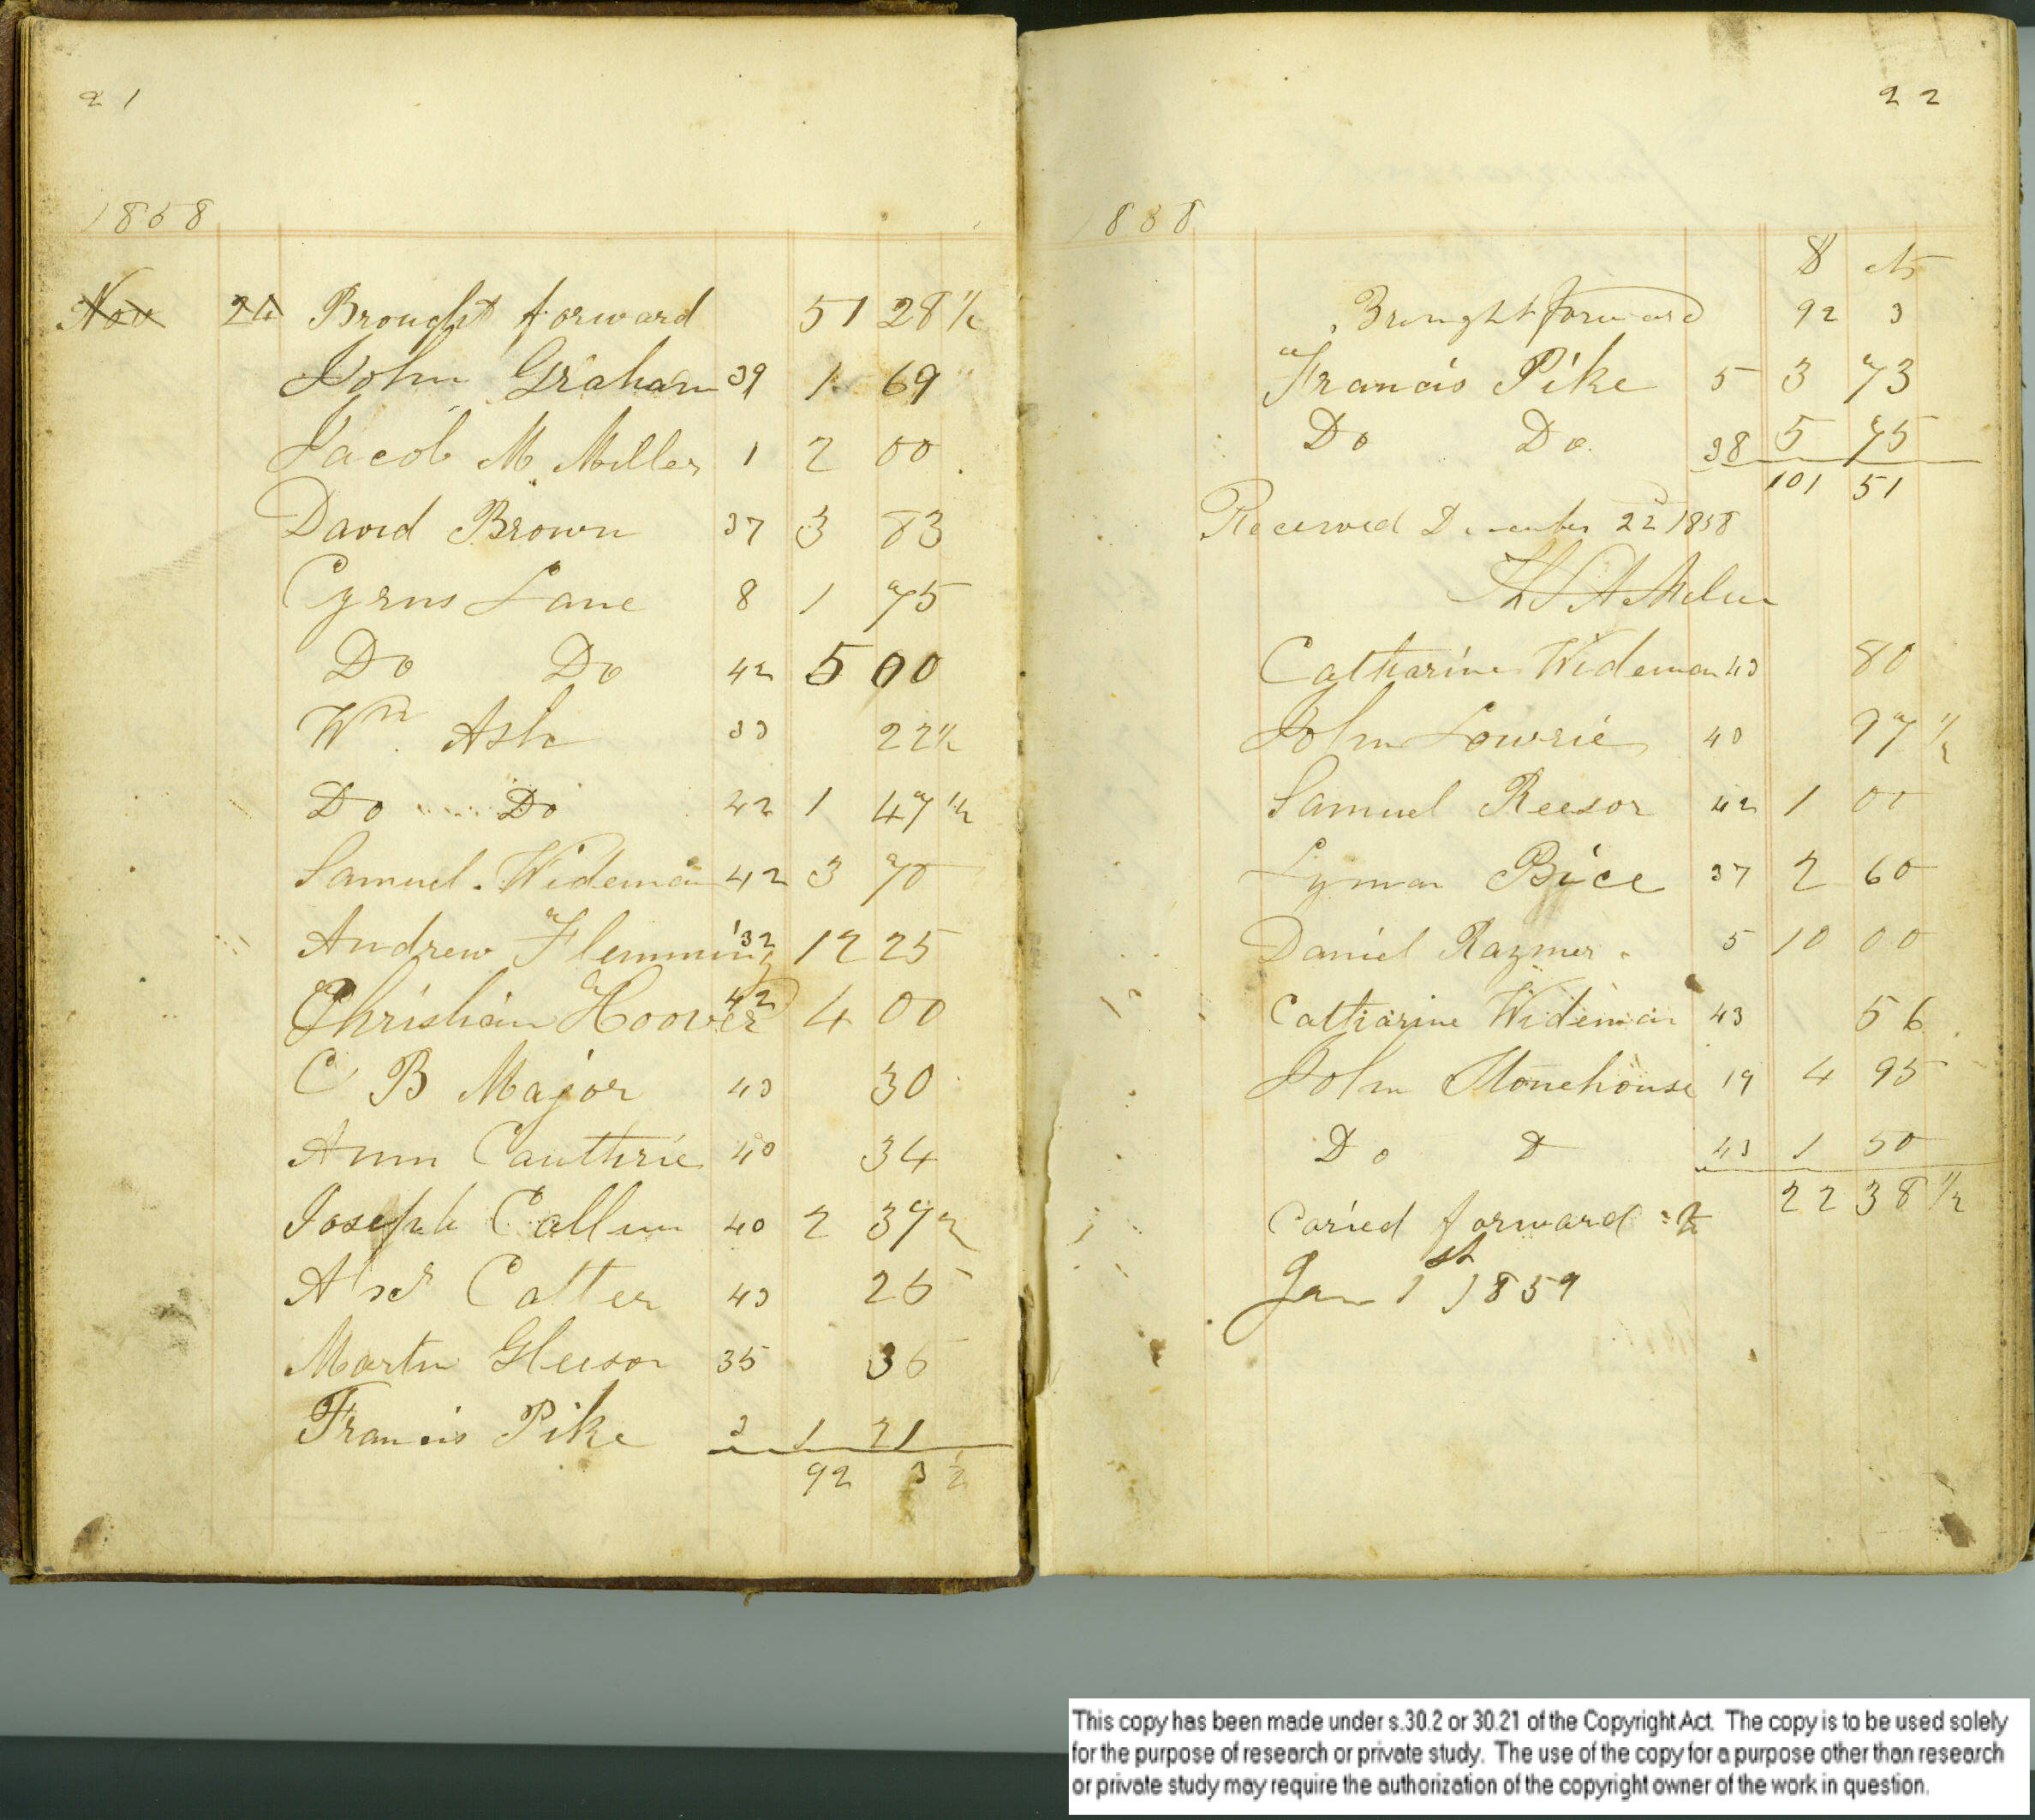 21
1858
Nov 24 Brought forward 51 28 1/2
John Graham 39 1 69
Jacob M Miller 1 2 00
David Brown 37 3 83
Cyrus Lane 8 1 75
Do Do 42 5 00
Wm Ash 33 22 1/2
Do Do 42 1 47 1/2
Samuel Wideman 42 3 70
Andrew Flemming 32 12 25
Christian Hoover 42 4 00
C B Major 43 30
Ann Cauthrie 40 34
Joseph Callum 40 2 37 1/2
Alxr Catter 43 25
Martin Gleeson 35 36
Francis Pike 3 1 21
92 3 1/2
22
1858
$ cts
Brought forward 92 3
Francis Pike 5 3 73
Do Do 38 5 75
101 51
Received December 22d 1858
Catharine Wideman 43 80
John Lowrie 40 97 1/2
Samuel Reesor 42 1 00
Lyman Bice 37 2 60
Daniel Razmer 5 10 00
Catharine Wideman 43 56
John Stonehouse 19 4 95
Do D 43 1 50
22 38 1/2
Caried forward
Jan 1st 1859
This copy has been made under s.30.2 or 30.21 of the Copyright Act. The copy is to be used solely
for the purpose of research or private study. The use of the copy for a purpose other than research
or private study may require the authorization of the copyright owner of the work in question.